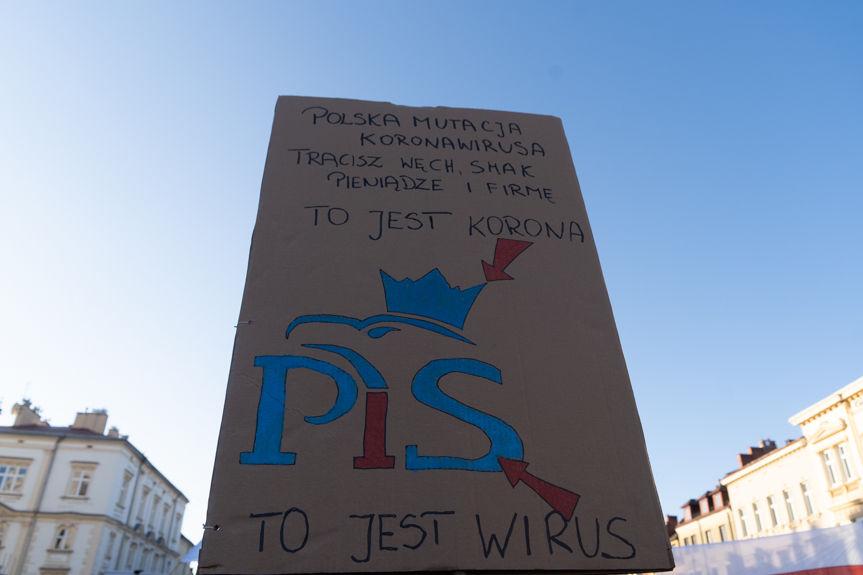 POLSKA MUTACJA
KORONAWIRUSA
TRACISZ WĘCH, SMAK
PIENIĄDZE I FIRMĘ
TO JEST KORONA
PiS
TO JEST WIRUS